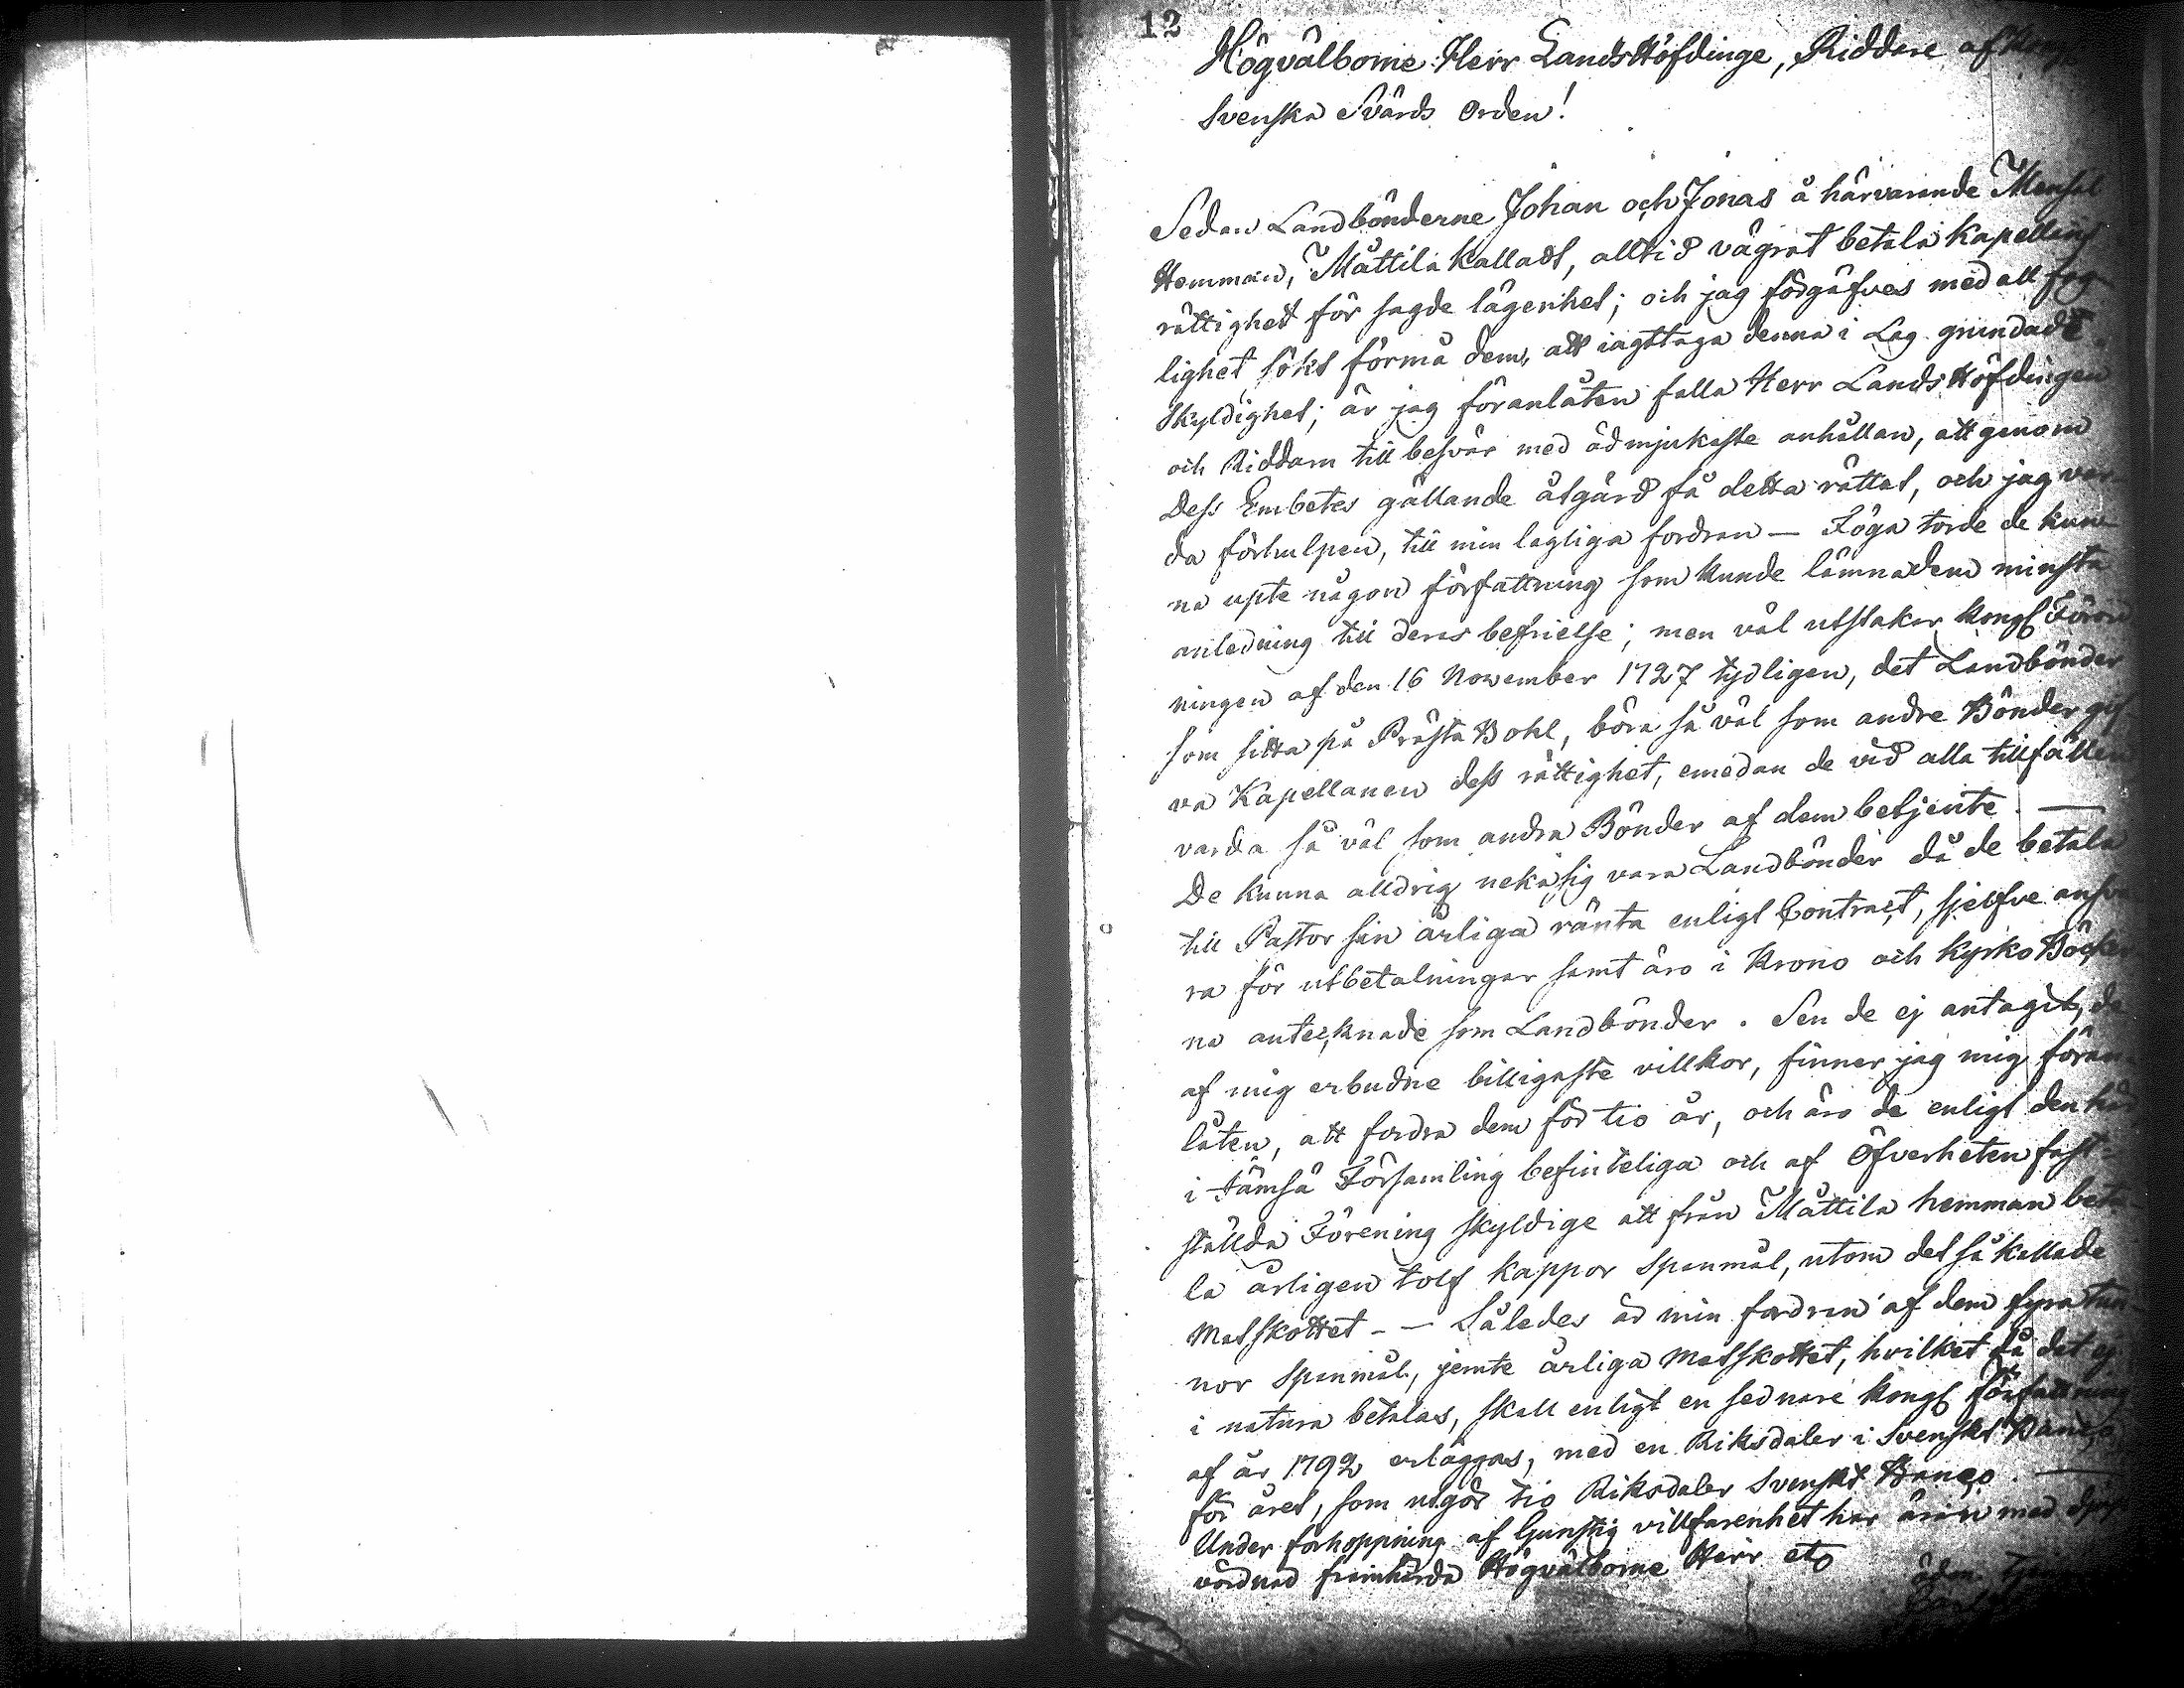 12
Högvälborne Herr LandsHöfdinge, Riddare af Kongl
Svenska Svärds Orden!
Sedan Landbönderne Johan och Jonas å härvarande Mensal
Hemman, Mattila kalladt, alltid vägrat betala Kapellans
rättighet för sagde lägenhet; och jag förgäfves med all fog-
lighet sökt förmå dem, att iagttaga denna i Lag grundade
Skyldighet; är jag föranlåten falla Herr LandsHöfdingen
och Riddaren till besvär med ödmjukaste anhållan, att genom
Dess Embetes gällande åtgärd få detta rättat, och jag var-
da förhulpen, till min lagliga fordran — Föga torde de kun-
na upte någon författning som kunde lämna dem minsta
anledning till deras befrielse; men väl utstakar Kongl Förord
ningen af den 16 November 1727 tydligen, det Landbönder
som sitta på PrästaBohl, böra så väl som andre Bönder gif
va Kapellanen dess rättighet, emedan de vid alla tillfällen
varda så väl som andra Bönder af dem betjente. —
De kunna alldrig neka sig vara Landbönder då de betala
till Pastor sin årliga ränta enligt Contract, sjelfve ansva
ra för utbetalningar samt äro i Krono och KyrkoBöcker
na antecknade som Landbönder. Sen de ej antagit, de
af mig erbudne billigaste villkor, finner jag mig föran-
låten, att fordra dem för tio år, och äro de enligt den här
i Jämsä Församling befinteliga och af Öfverheten fast-
ställda Förening skyldige att från Mattila hemman beta-
la årligen tolf kappor Spanmål, utom det så kallade
Matskottet - — Således är min fordran af dem fyra tun-
nor Spanmål, jemte årliga Matskottet, hvilket då det ej
i natura betalas, skall enligt en sednare Kongl författning
af år 1792 erläggas, med en Riksdaler i Svenskt Banco
för året, som utgör tio Riksdaler Svenskt Banco. —
Under förhoppning af Gunstig villfarenhet har äran med djup
vördnad framhärda Högvälborne Herr etc
ödm.